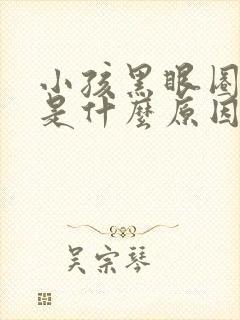 小孩黑眼圈
是什麼原因
吴宗琴